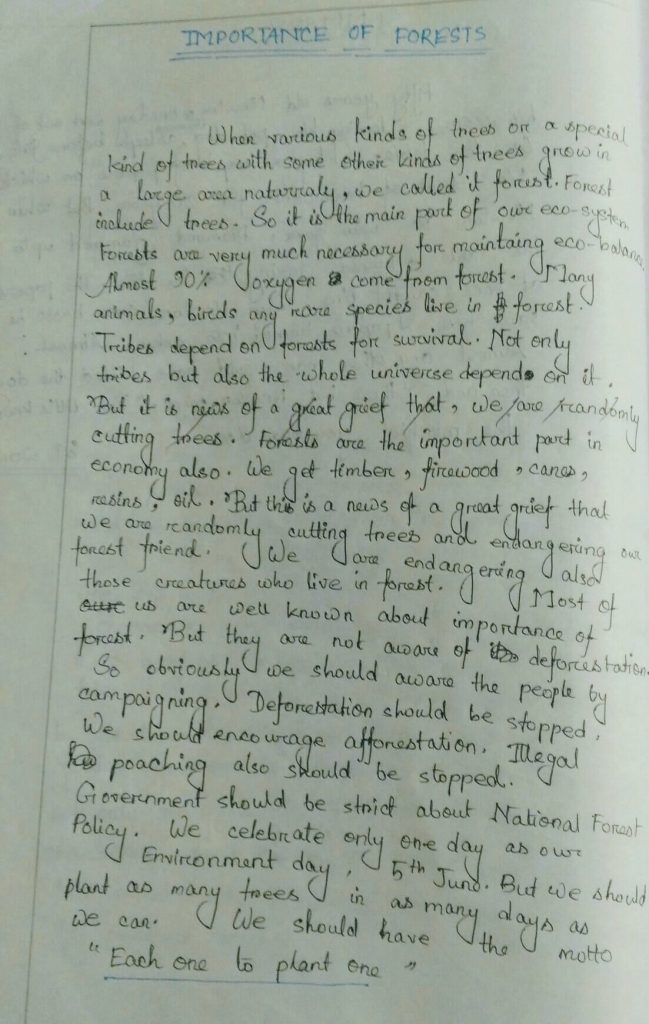 IMPORTANCE OF FORESTS
When various kinds of trees or a special
kind of trees with some other kinds of trees grow in
a large area naturraly, we called it forest. Forest
include trees. So it is the main part of our eco-system.
Forests are very much necessary for maintaing eco-balance.
Almost 90% oxygen come from forest. Many
animals, birds any rare species live in forest.
Tribes depend on forests for survival. Not only
tribes but also the whole universe depends on it.
But it is news of a great grief that, we are randomly
cutting trees. Forests are the important part in
economy also. We get timber, firewood, canes,
resins, oil. But this is a news of a great grief that
we are randomly cutting trees and endangering our
forest friend. We are endangering also
those creatures who live in forest. Most of
us are well known about importance of
forest. But they are not aware of deforestation.
So obviously we should aware the people by
campaigning. Deforestation should be stopped.
We should encourage afforestation. Illegal
poaching also should be stopped.
Government should be strict about National Forest
Policy. We celebrate only one day as our
Environment day, 5th June. But we should
plant as many trees in as many days as
we can. We should have the motto
"Each one to plant one"